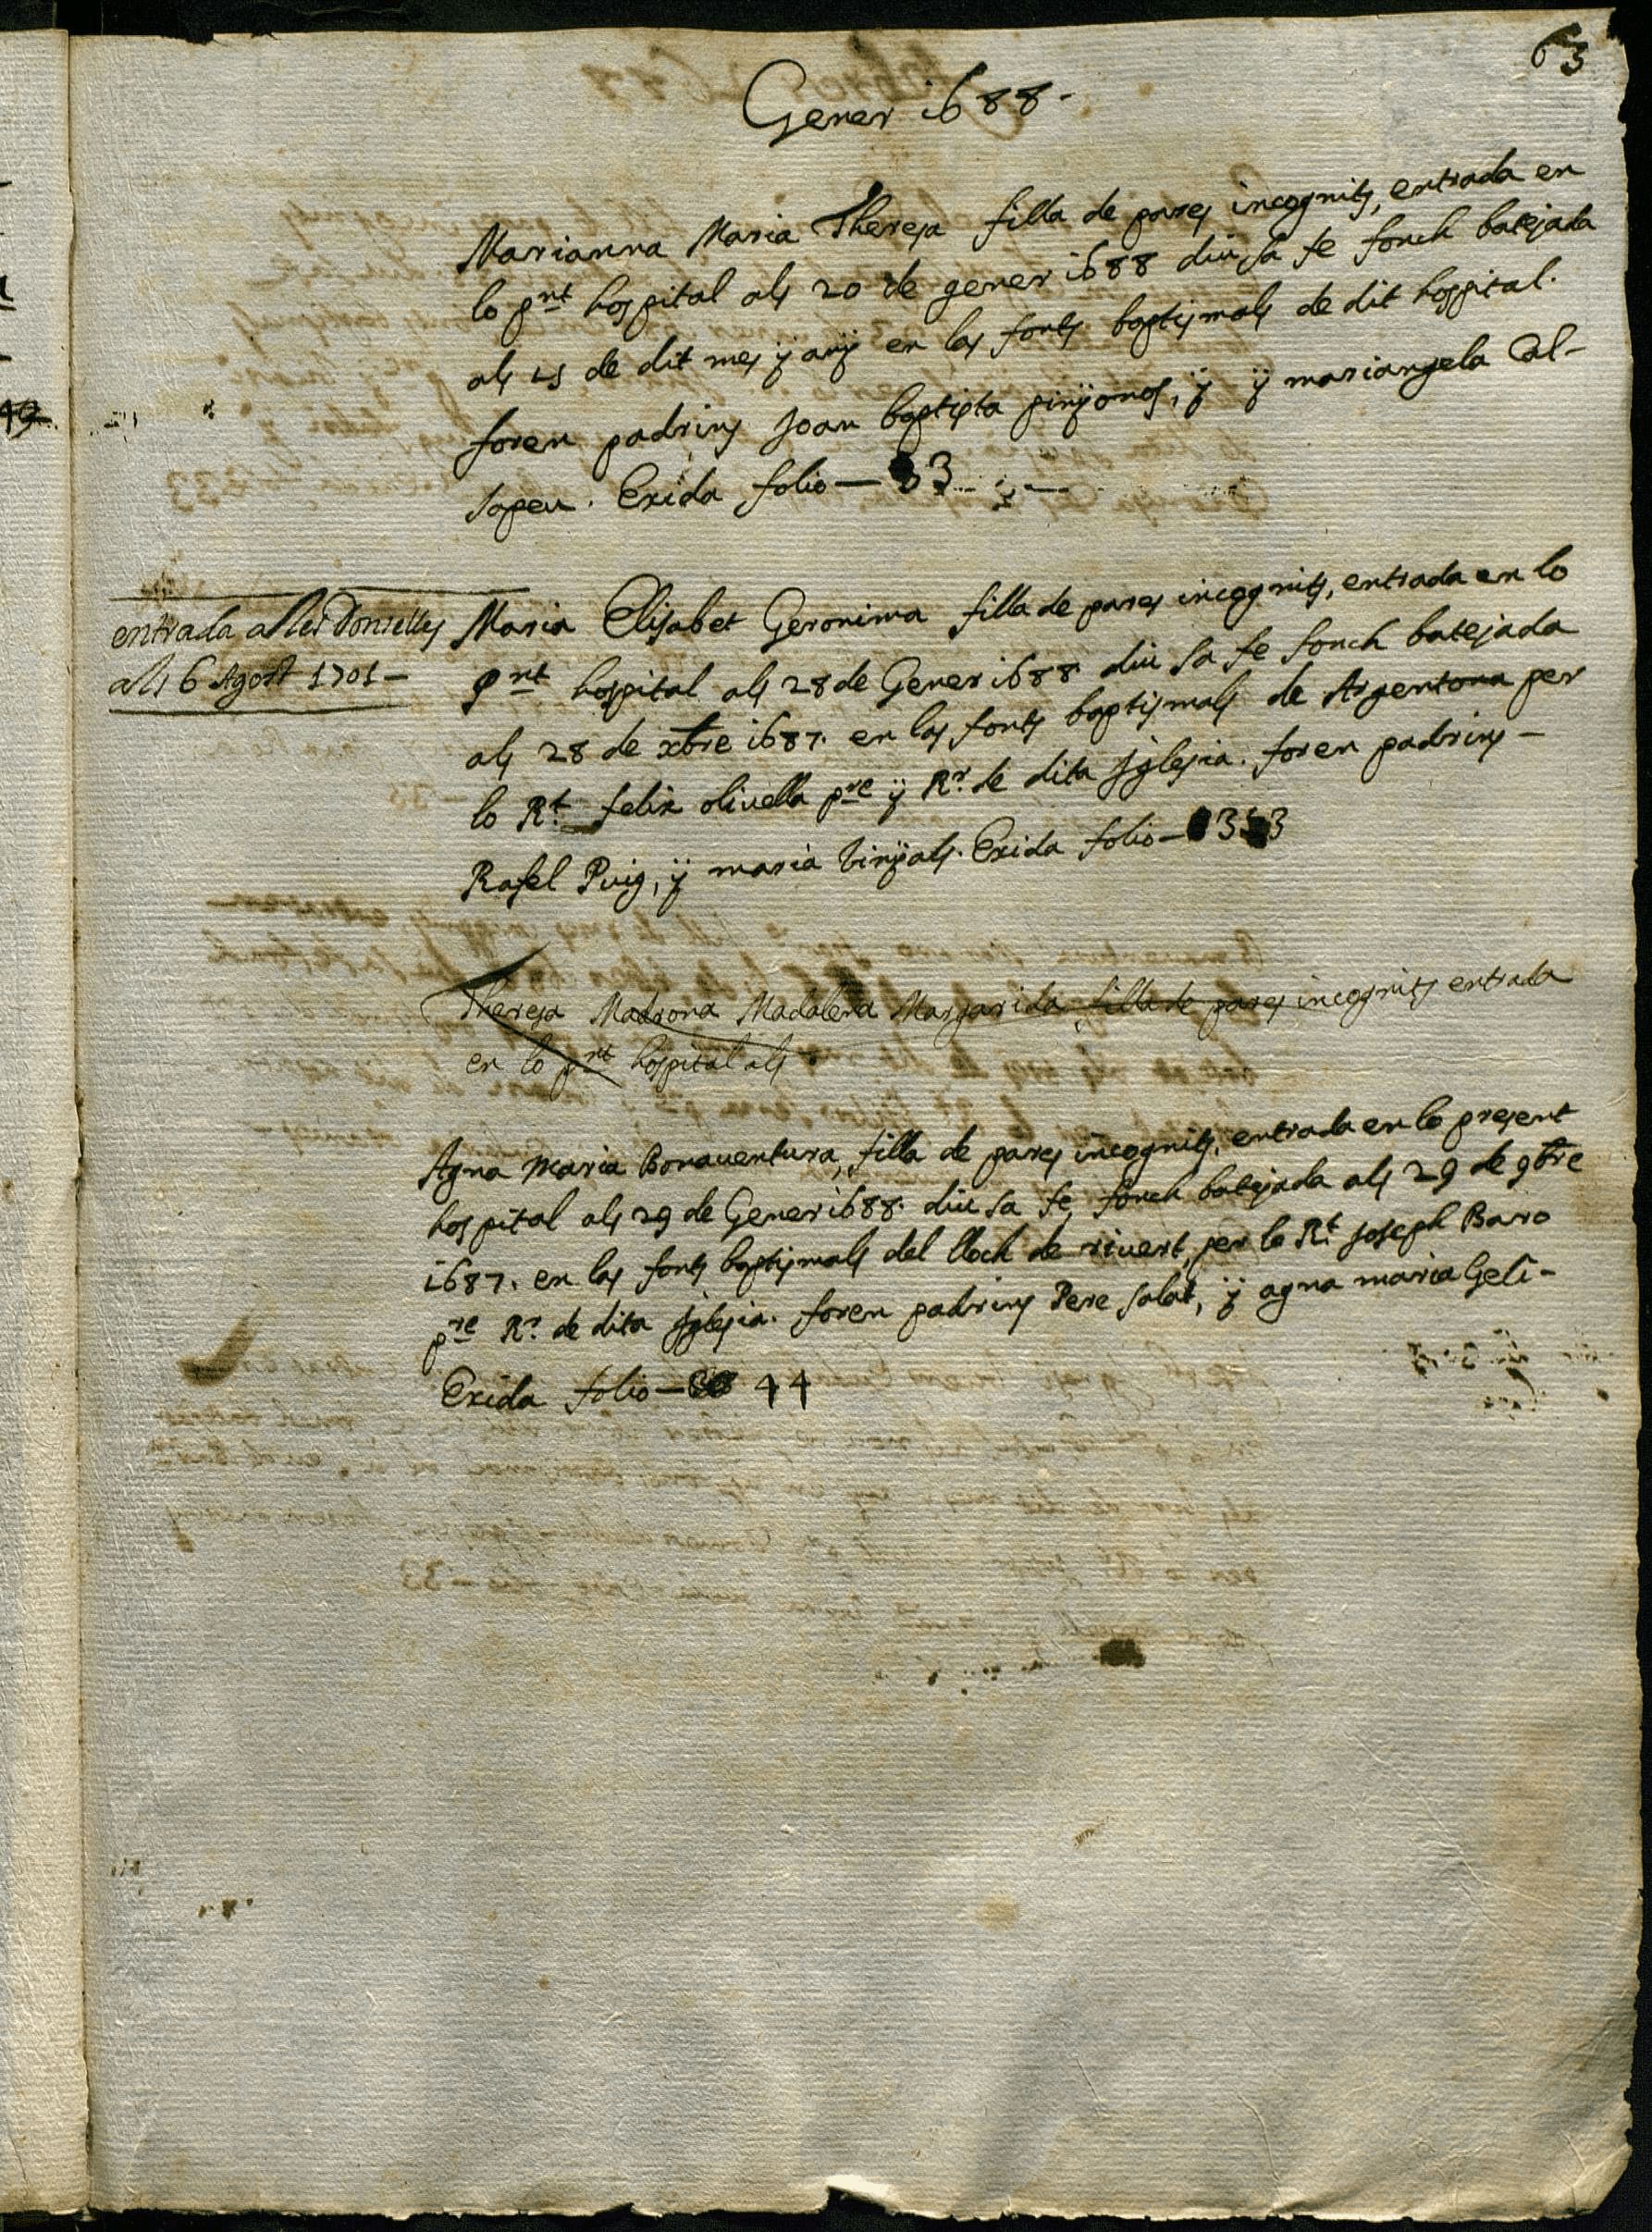 63
Gener 1688.
Marianna Maria Theresa filla de pares incognits, entrada en
lo pnt hospital als 20 de gener 1688 diu sa fe fonch batejada
als 15 de dit mes ÿ anÿ en las fonts baptismals de dit hospital.
foren padrins Joan baptista pinÿonos, ÿ ÿ mariangela Cal-
sapeu. Exida folio — 33
entrada a les Donselles
als 6 Agost 1701 —
Maria Elisabet Geronima filla de pares incognits, entrada en lo
pnt hospital als 28 de Gener 1688. diu sa fe fonch batejada
als 28 de xbre 1687. en las fonts baptismals de Argentona per
lo Rt. felix olivella pre ÿ Rr. de dita Iglesia. foren padrins —
Rafel Puig, ÿ maria vinÿals. Exida folio —
Theresa Madrona Madalena Margarida filla de pares incognits entrada
en lo pnt hospital als
Agna Maria Bonaventura, filla de pares incognits, entrada en lo present
hospital als 29 de Gener 1688. diu sa fe, fonch batejada als 29 de 9bre
1687. en las fonts baptismals del lloch de rivert, per lo Rt. Joseph Baro
pre Rr. de dita Iglesia. foren padrins Pere salat, ÿ agna maria Geli —
Exida folio — 44